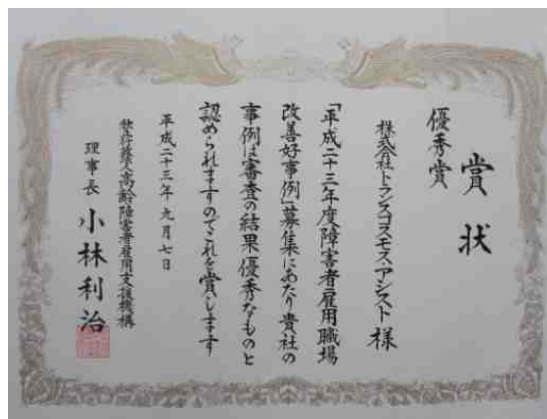 賞状
優秀賞
株式会社トランスコスモスアシスト様
「平成二十三年度障害者雇用職場
改善好事例」募集にあたり貴社の
事例は審査の結果優秀なものと
認められますのでこれを賞します
平成二十三年九月七日
独立行政法人高齢障害者雇用支援機構
理事長 小林利治